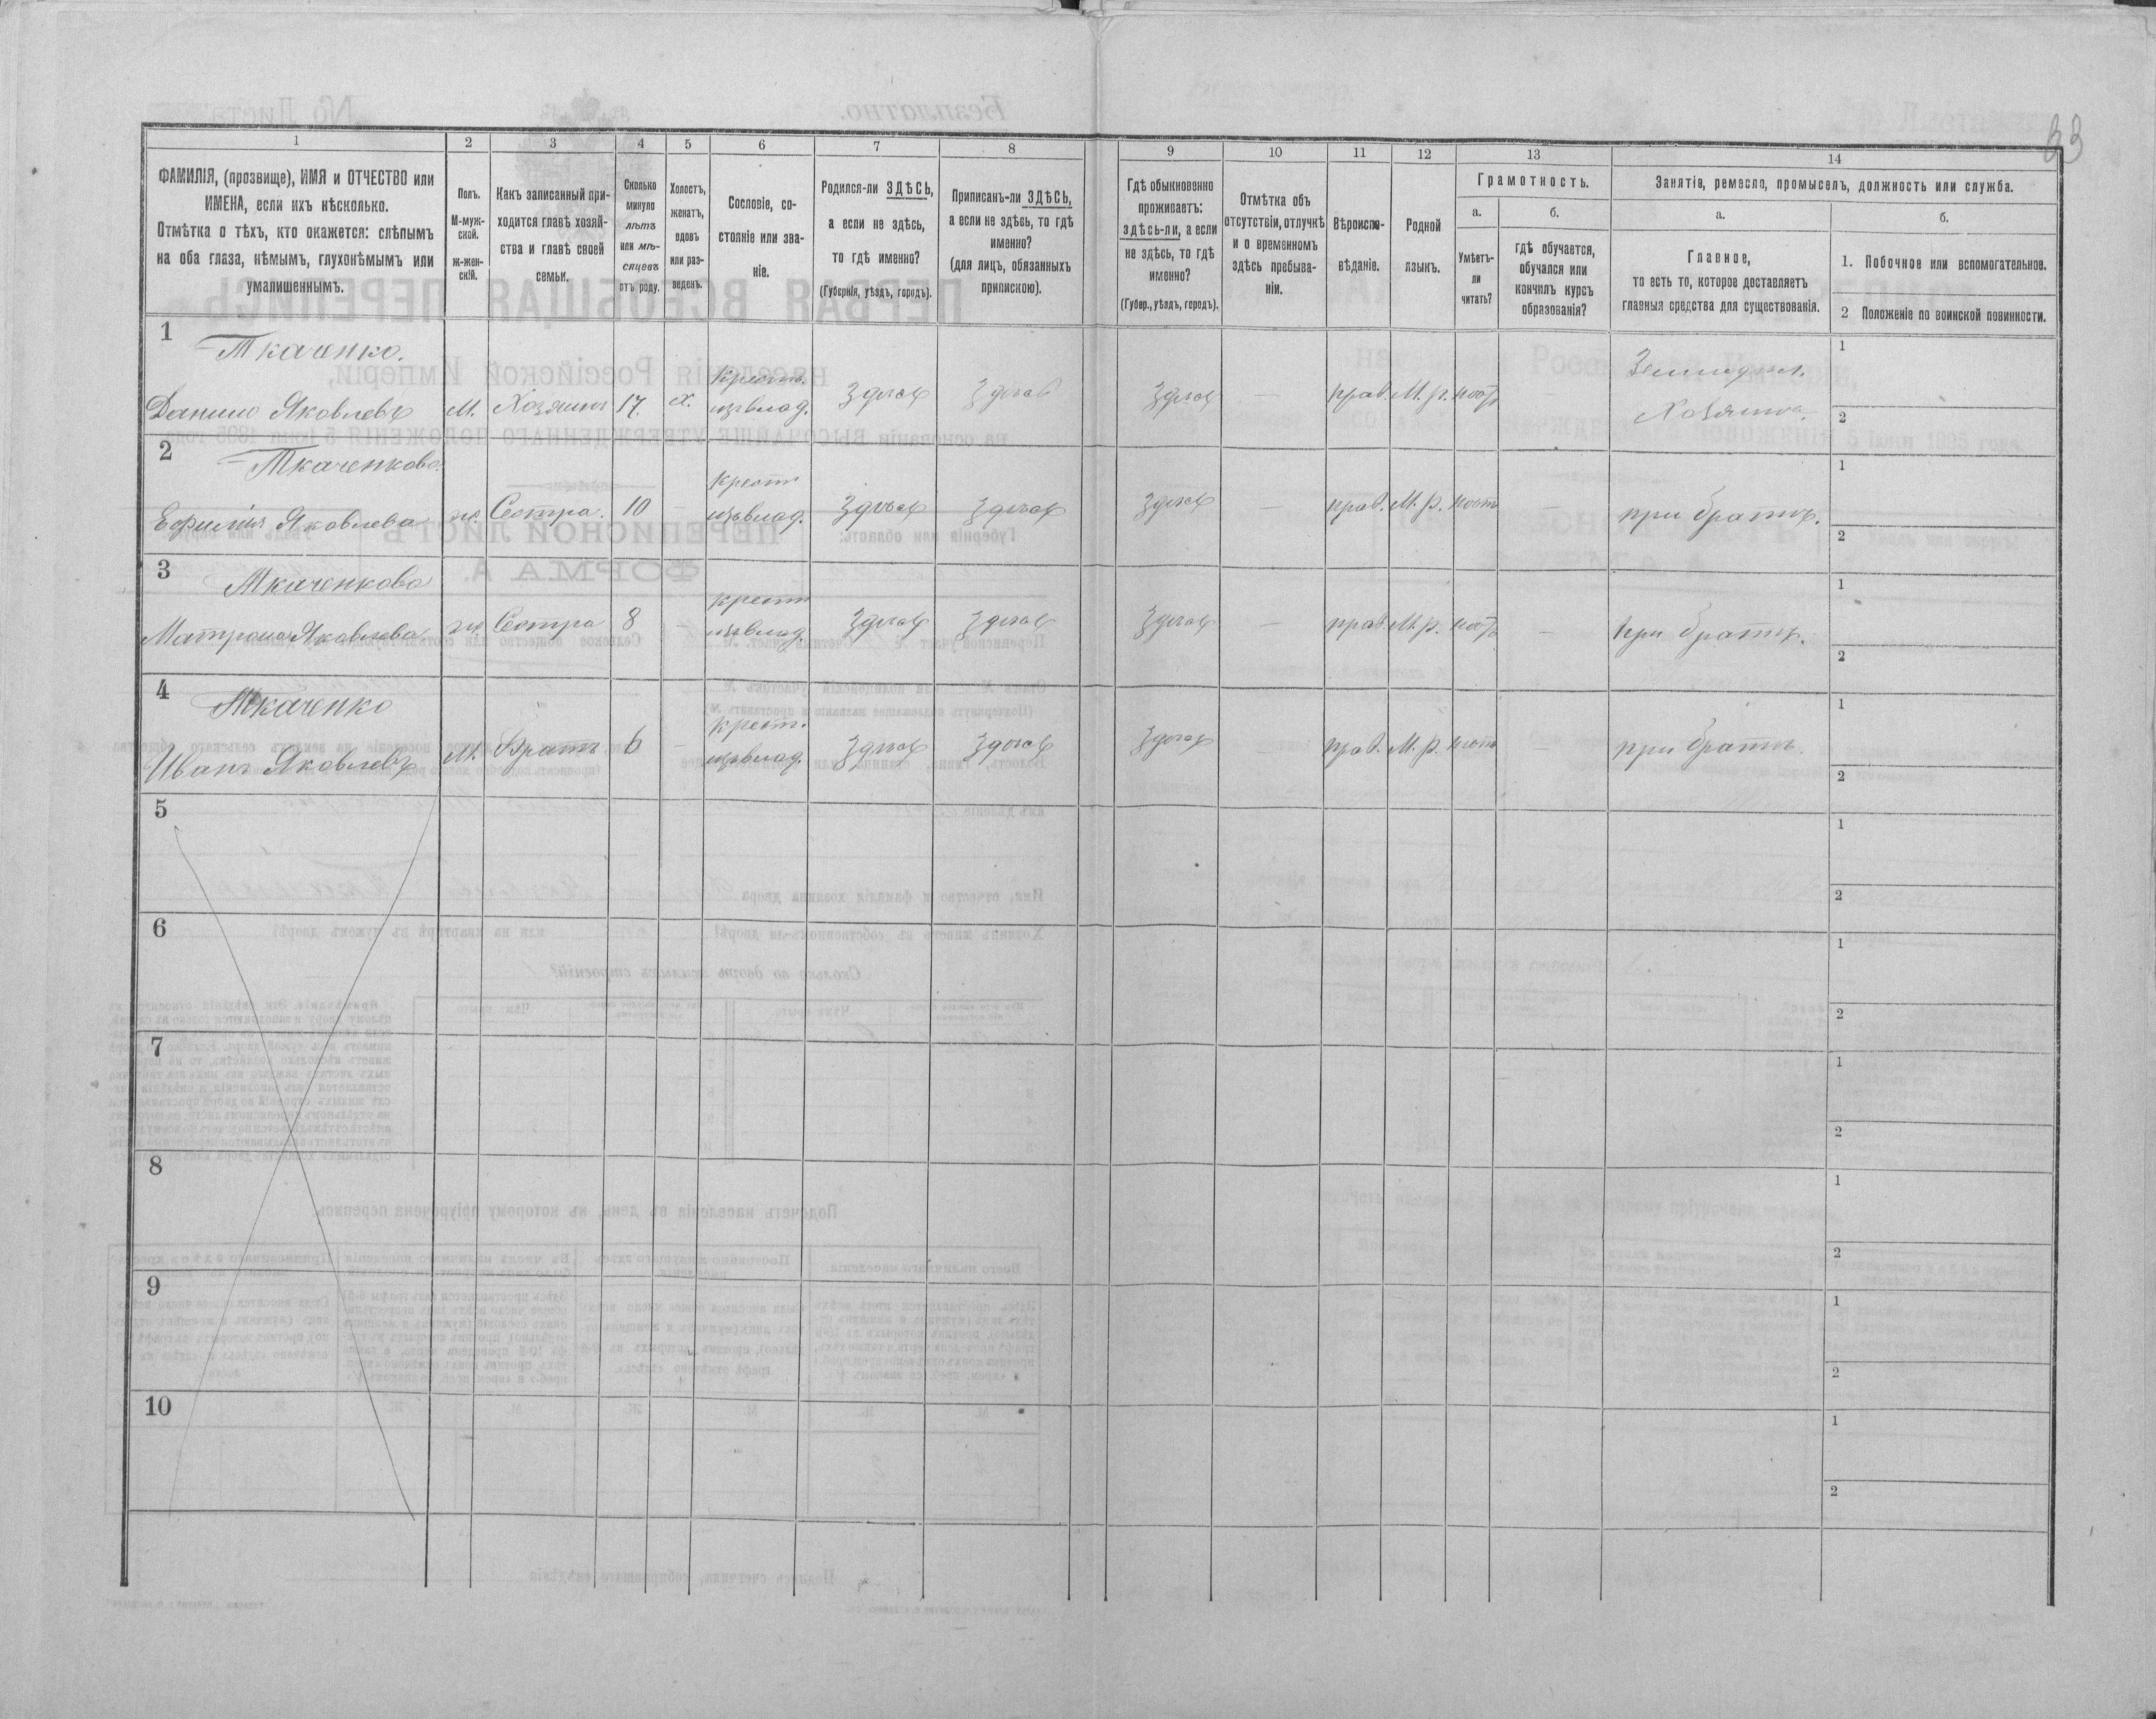 33
1 2 3 4 5 6 7 8 9 10 11 12 13 14
ФАМИЛІЯ, (прозвище), ИМЯ и ОТЧЕСТВО или
ИМЕНА, если ихъ нѣсколько.
Отмѣтка о тѣхъ, кто окажется: слѣпымъ
на оба глаза, нѣмымъ, глухонѣмымъ или
умалишеннымъ.
Полъ.
М-муж-
ской.
Ж-жен-
скій.
Какъ записанный при-
ходится главѣ хозяй-
ства и главѣ своей
семьи.
Сколько
минуло
лѣтъ
или мѣ-
сяцевъ
отъ роду.
Холостъ,
женатъ,
вдовъ
или раз-
веденъ.
Сословіе, со-
стояніе или зва-
ніе.
Родился-ли ЗДѢСЬ,
а если не здѣсь,
то гдѣ именно?
(Губернія, уѣздъ, городъ).
Приписанъ-ли ЗДѢСЬ,
а если не здѣсь, то гдѣ
именно?
(для лицъ, обязанныхъ
припискою).
Гдѣ обыкновенно
проживаетъ:
здѣсь-ли, а если
не здѣсь, то гдѣ
именно?
(Губер., уѣздъ, городъ).
Отмѣтка объ
отсутствіи, отлучкѣ
и о временномъ
здѣсь пребыва-
ніи.
Вѣроиспо-
вѣданіе.
Родной
языкъ.
Грамотность.
а.
Умѣетъ-
ли
читать?
б.
гдѣ обучается,
обучался или
кончилъ курсъ
образованія?
Занятіе, ремесло, промыселъ, должность или служба.
а.
Главное,
то есть то, которое доставляетъ
главныя средства для существованія.
б.
1. Побочное или вспомогательное.
2 Положеніе по воинской повинности.
1 Ткаченко. крест. Земледѣл. 1
Данило Яковлевъ М. Хозяинъ 17 х. изъ влад. Здѣсь Здѣсь Здѣсь — прав. М. р. нѣтъ — Хозяинъ 2
2 Ткаченкова крест 1
Ефимія Яковлева ж. Сестра. 10 — изъ влад. Здѣсь Здѣсь Здѣсь — прав. М. р. нѣтъ — при братѣ. 2
3 Ткаченкова крест 1
Матрона Яковлева ж. Сестра 8 — изъ влад. Здѣсь Здѣсь Здѣсь — прав. М. р. нѣтъ — при братѣ. 2
4 Ткаченко крест. 1
Иванъ Яковлевъ М. Братъ 6 — изъ влад. Здѣсь Здѣсь Здѣсь — прав. М. р. нѣтъ — при братѣ. 2
5 1
2
6 1
2
7 1
2
8 1
2
9 1
2
10 1
2